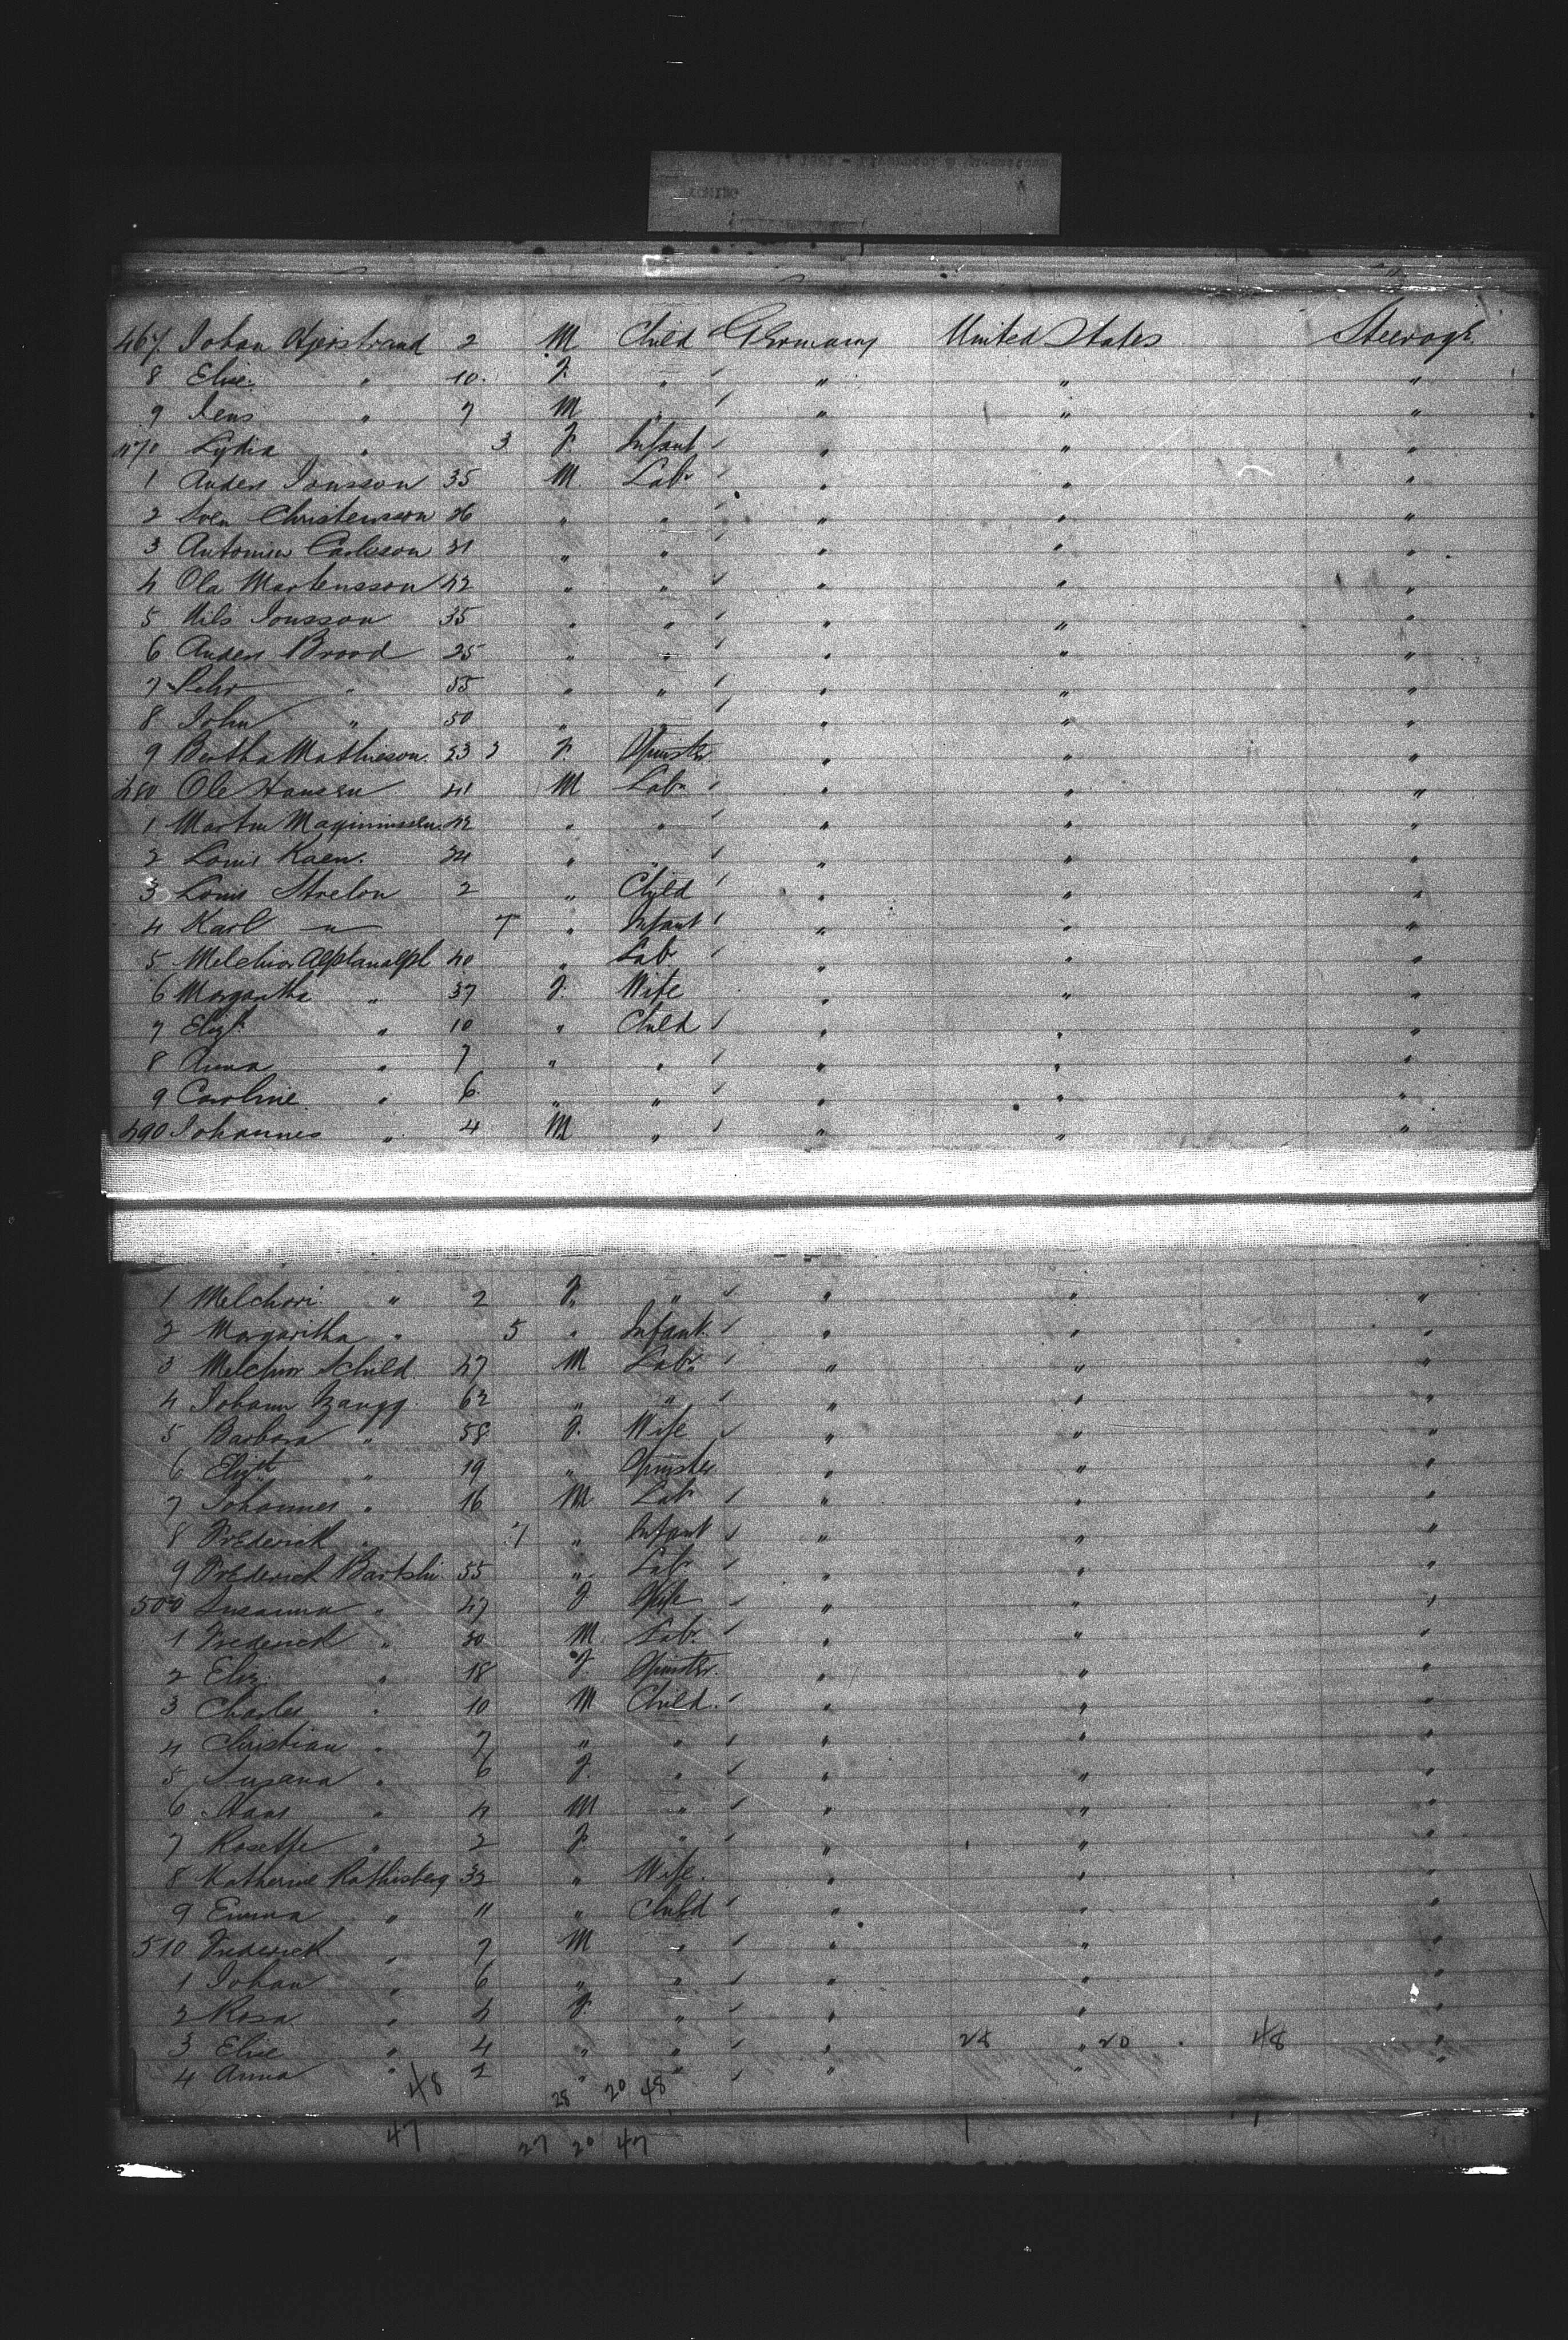 467. Johan Hjerstrand 2 M Child Germany United States Steerage
8 Elise " 10 F " " " "
9 Jens " 7 M " " " "
470 Lydia " 3 F Infant " " "
1 Anders Jonsson 35 M Labr " " "
2 Sven Christensson 26 " " " " "
3 Carlsson 31 " " " " "
4 Ola Martensson 42 " " " " "
5 Nils Jonsson 35 " " " " "
6 Anders Brood 25 " " " " "
7 Pehr " 55 " " " " "
8 John " 50 " " " " "
9 Bertha Mathieson 23 F Spinster " " "
480 Ole Hansen 41 M Labr " " "
1 Martin 42 " " " " "
2 Louis Kaen. 34 " " " " "
3 Louis Strelon 2 " Child " " "
4 Karl " 7 " Infant " " "
5 Melchior 40 " Labr " " "
6 Margaritha " 37 F. Wife " " "
7 Elizth " 10 " Child " " "
8 Anna " 7 " " " " "
9 Caroline " 6 " " " " "
490 Johannes " 4 M " " " "
1 Melchori " 2 F. " " " "
2 Margaritha " 5 " Infant " " "
3 Melchior Schild. 47 M Labr " " "
4 Johann Zaugg. 62 " " " " "
5 Barbara " 58 F. Wife " " "
6 Elizth " 19 " Spinster " " "
7 Johannes " 16 M Labr " " "
8 Frederick " 7 " Infant " " "
9 Frederick Bartshi 55 " Labr " " "
500 Susanna " 47 F Wife " " "
1 Frederick " 30 M Labr. " " "
2 Eliz. " 18 F. Spinster. " " "
3 Charles " 10 M Child. " " "
4 Christian " 7 " " " " "
5 Susana " 6 F. " " " "
6 Hans " 4 M " " " "
7 Rosette " 2 F. " " " "
8 Katherine Rothisberg 32 " Wife. " " "
9 Emma " 11 " Child " " "
510 Frederick " 7 M " " " "
1 Johan " 6 " " " " "
2 Rosa " 4 F. " " " "
3 Elise " 4 " " " 28 " 20 48 "
4 Anna " 2 " " " " "
48 28 20 48
47 27 20 47 1 1